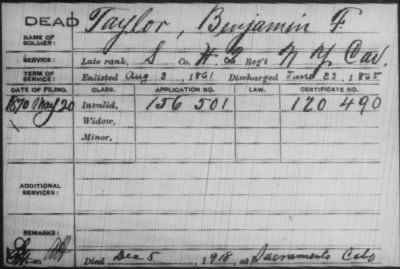 DEAD
NAME OF SOLDIER: Taylor, Benjamin F.
SERVICE: Late rank, S Co. H. 2 Reg't N Y Cav.
TERM OF SERVICE: Enlisted Aug 2, 1861 Discharged June 23, 1865
DATE OF FILING. CLASS. APPLICATION NO. LAW. CERTIFICATE NO.
1870 May 20 Invalid, 156 501 120 490
Widow,
Minor,
ADDITIONAL SERVICES:
REMARKS:
Died Dec 5, 1918, at Sacramento Cal